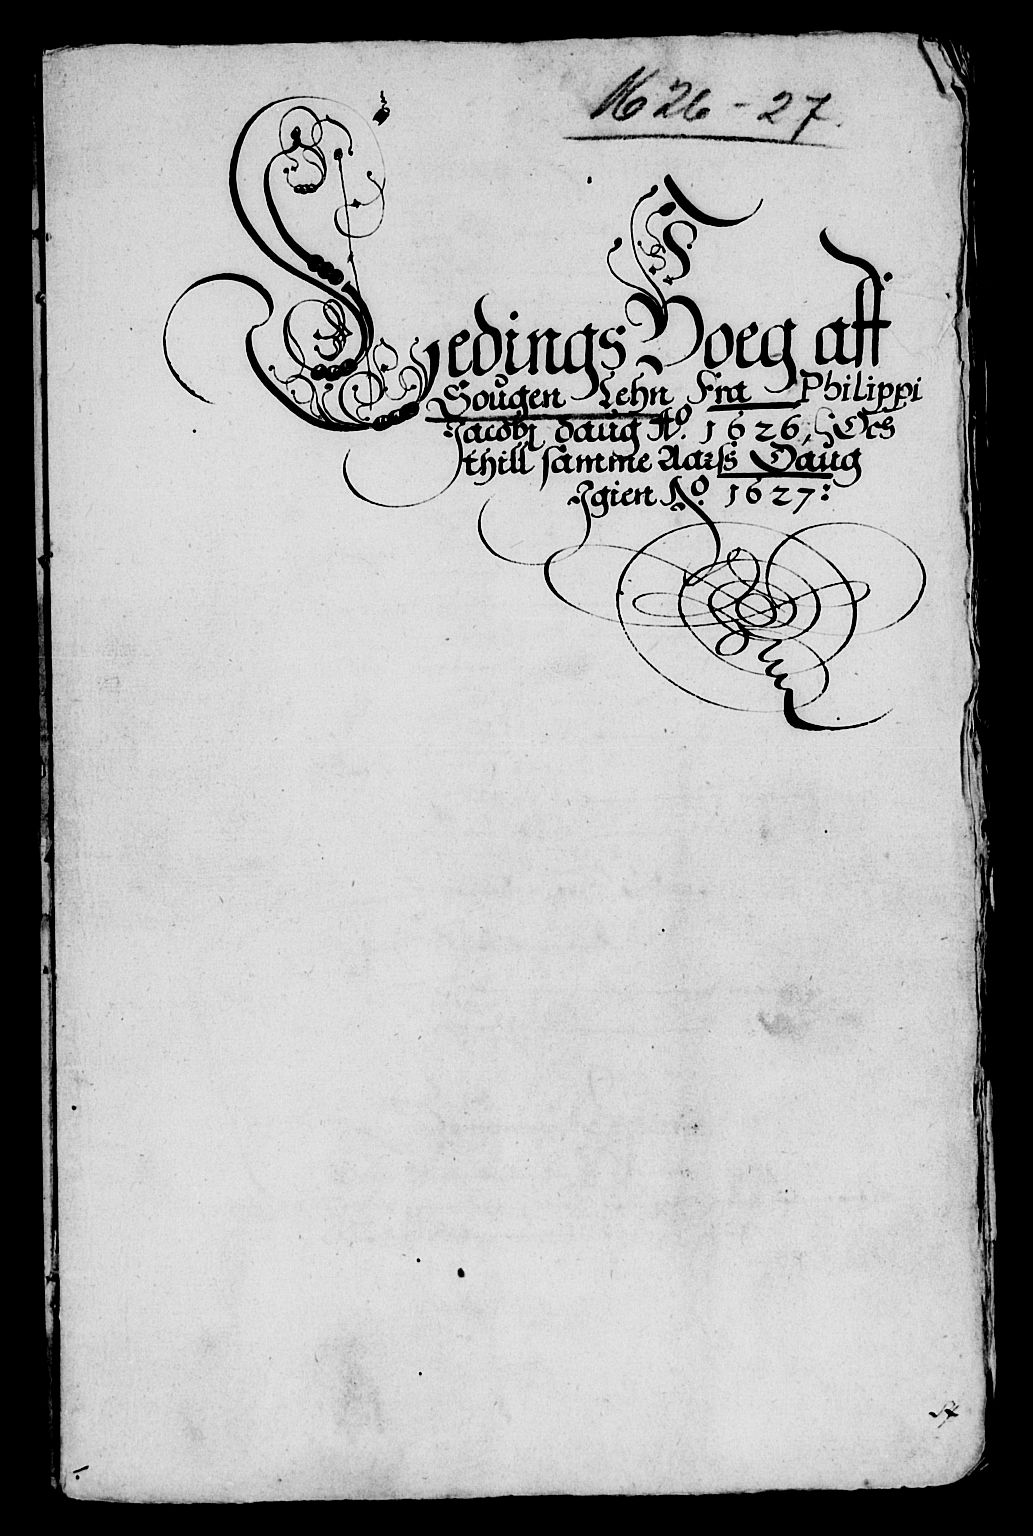 1626-27.
Ledings Boeg aff
Sougen Lehn Fra Philippi
Jacobj daug Aō. 1626, Och
thill samme Aarss Daug
Igien Aō. 1627: